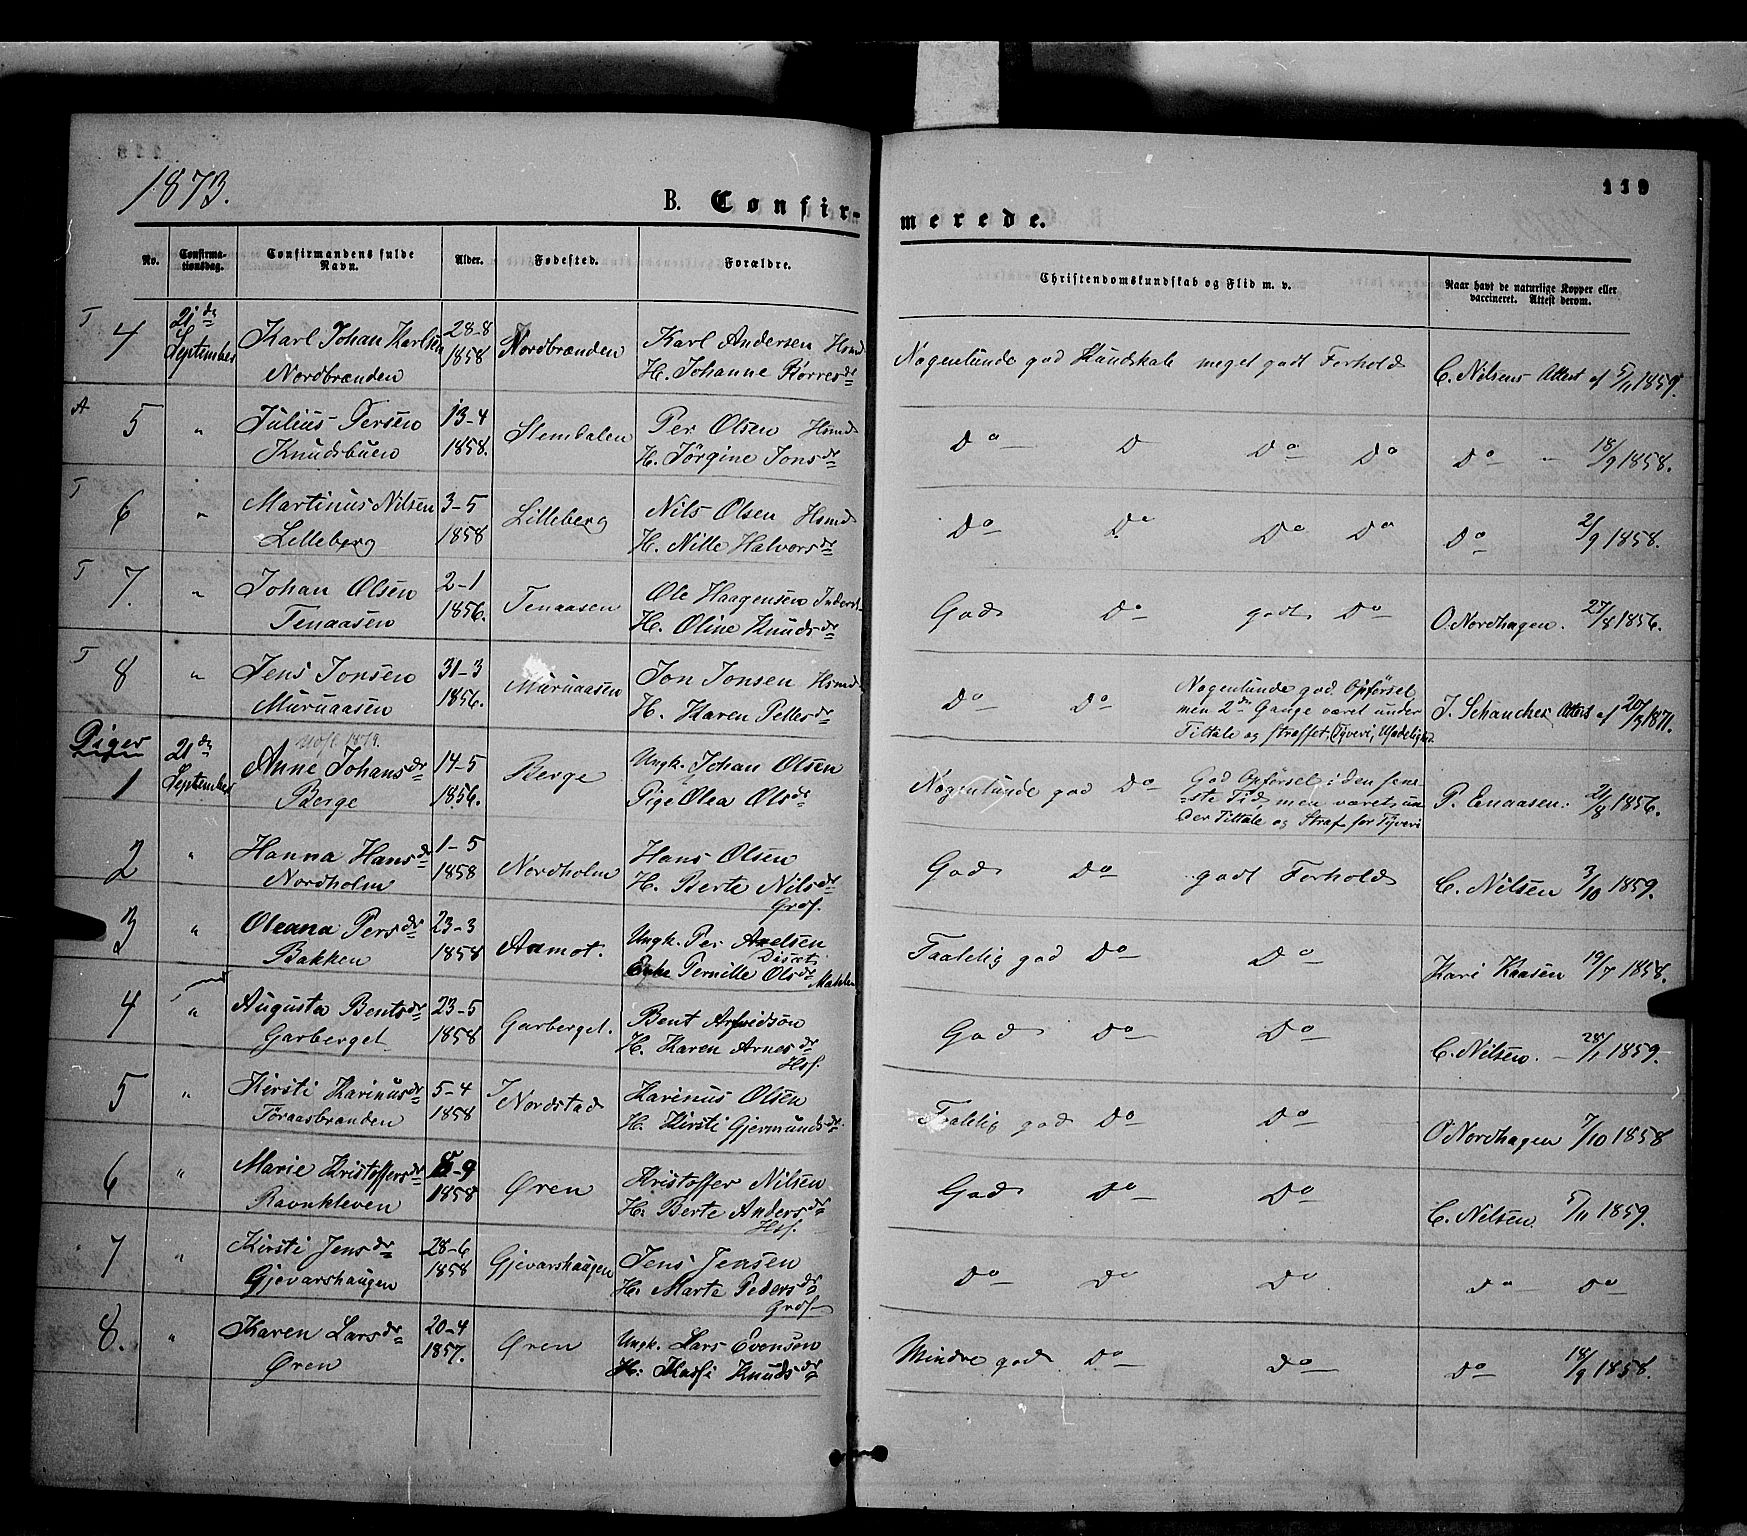 1873.
119
B. Confir-
merede.
No.
Confirma-
tionsdag.
Confirmandens fulde
Navn.
Alder.
Fødested.
Forældre.
Christendomskundskab og Flid m. v.
Naar havt de naturlige Kopper eller
vaccineret. Attest derom.
T 4 21de September Karl Johan Karlsen 28-8 1858 Nordbrænden Karl Andersen Hsmd
Nordbrænden H. Johanne Børresdr
Nogenlunde god Kundskab meget godt Forhold C. Nilsens Attest af 5/11 1859.
A 5 " Julius Persen 13-4 1858. Stemdalen Per Olsen Hsmd
Knudsbuen H. Jörgine Jonsdr
Do D Do Do Do - 18/9 1858.
T 6 " Martinus Nilsen 3-5 1858 Lilleberg Nils Olsen Hsmd
Lilleberg H. Nille Halvorsdr
Do Do Do Do Do 2/9 1858.
T 7. " Johan Olsen 2-1 1856. Tenaasen Ole Haagensen
Tenaasen H. Oline Knudsdr
God Do godt Do O. Nordhagen. 27/8 1856.
T 8 " Jens Jonsen 31-3 1856. Muruaasen Jon Jonsen Hsmd
Muruaasen H. Karen Pettersdr
Do Do Nogenlunde god Opførsel
men 2de Gange været under
Tiltale og straffet, Tyveri, Usædelighed.
J. Schanches Attest af 20/3 1871.
Piger
1 21de September Anne Johansdr 14-5 1856. Berge Ungk. Johan Olsen
Berge Pige Olea Olsdr
Nogenlunde god Do God Opførsel i den sene-
ste Tid, men været un-
der Tiltale og Straf for Tyveri
P. Enaasen: 21/8 1856.
2 " Hanna Hansdr 1-5 1858 Nordholm Hans Olsen
Nordholm H. Berte Nilsdr
God Do godt Forhold C. Nilsen 3/10 1859.
3 " Oleana Persdr 23-3 1858 Aamot. Ungk. Per Axelsen
Bakken Enke Pernille Olsdr
Taalelig god Do Do Kari Kaasen 19/7 1858.
4 " Augusta Bentsdr 23-5 1858 Garberget. Bent Arfvidson
Garberget H. Karen Arnesdr
God Do Do C. Nilsen. - 28/1 1859.
5 " Kirsti Karinusdr 5-4 1858 Nordstad Karinus Olsen
Töraasbrænden H. Kirsti Gjermundsdr.
Taalelig god Do Do O Nordhagen 7/10 1858
6 " Marie Kristoffersdr 5-9 1858 Øren Kristoffer Nilsen
Ravnkleven H. Berte Andersdr
God Do Do C. Nilsen. 5/11 1859.
7 " Kirsti Jensdr 28-6 1858 Gjevarshaugen Jens Jensen
Gjevarshaugen H. Marte Pedersdr
Do Do Do Do Do
8. " Karen Larsdr 20-4 1857. Øren Ungk. Lars Evensen
Øren H. Kassi Knudsdr
Mindre god Do Do Do 18/9 1858.